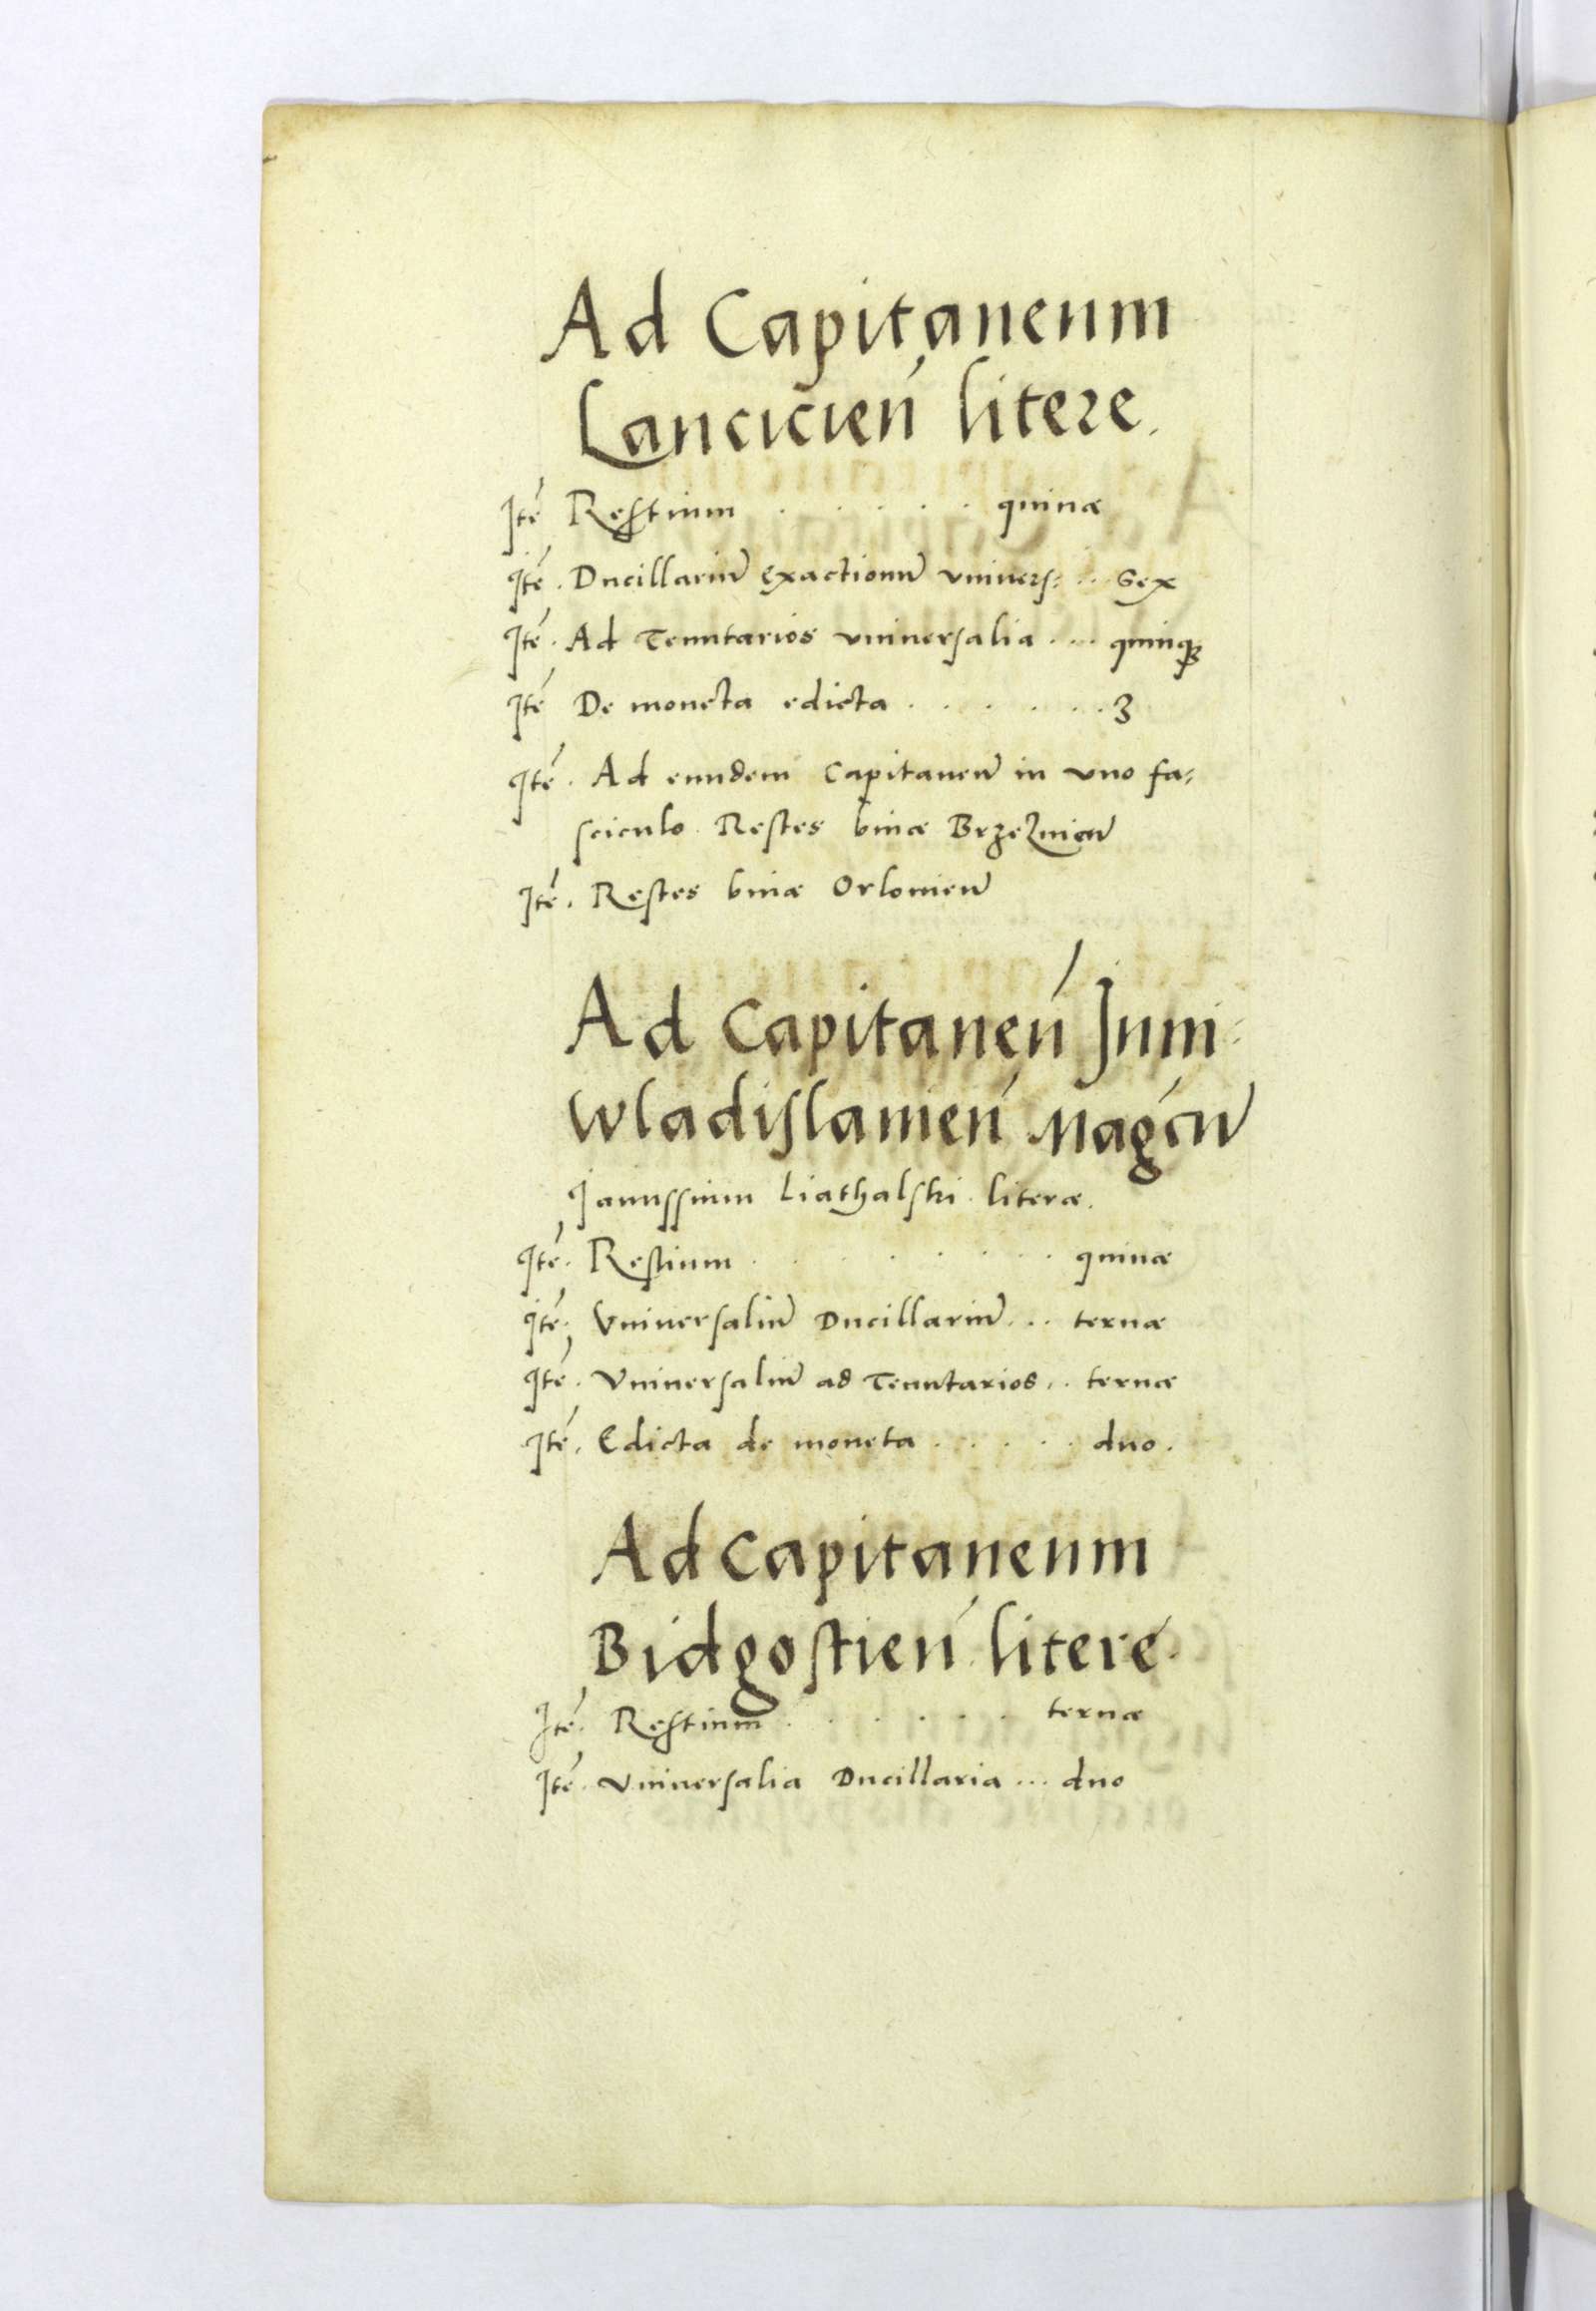 Ad Capitaneum
Lancicień litere.
Itē Restium . . . . . . quinæ
Itē. Ducillariū exactionū vniuers: .. Sex
Itē. Ad Tenutarios vniuersalia .... quinqȝ
Itē De moneta edicta . . . . . . . 3
Itē. Ad eundem Capitaneū in vno fa:
sciculo Restes binæ Brzeznicēn
Itē. Restes binæ Orlouień
Ad Capitaneū Juni:
Wladislauień Magcū
Janussium Liathalski literæ.
Itē. Restium . . . . . . . quinæ
Itē. Vniuersaliū Ducillariū ... ternæ
Itē. Vniuersaliū ad Tenutarios .. ternæ
Itē. Edicta de moneta . . . . . duo.
Ad Capitaneum
Bidgostień litere
Itē. Restium . . . . . . ternæ
Itē. Vniuersalia Ducillaria ... duo